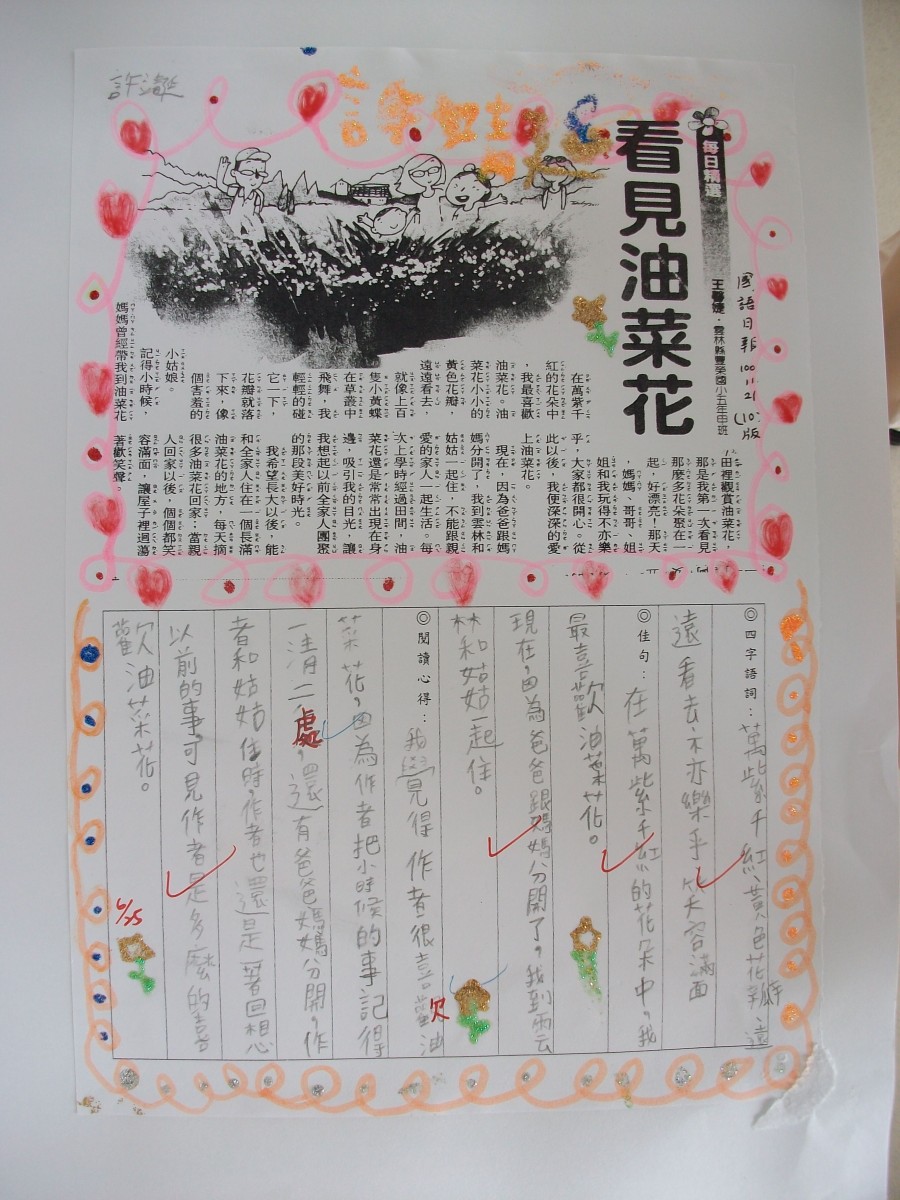 許
許
每日精選
看見油菜花
王馨婕．雲林縣豐榮國小五年甲班
國語日報 100.11.21 (10版)
在萬紫千
紅的花朵中
，我最喜歡
油菜花。油
菜花小小的
黃色花瓣，
遠遠看去，
就像上百
隻小黃蝶
在草叢中
飛舞，我
輕輕的碰
它一下，
花瓣就落
下來，像
個害羞的
小姑娘。
記得小時候，
媽媽曾經帶我到油菜花
田裡觀賞油菜花，
那是我第一次看見
那麼多花朵聚在一
起，好漂亮！那天
，媽媽、哥哥、姐
姐和我玩得不亦樂
乎，大家都很開心。從
此以後，我便深深的愛
上油菜花。
現在，因為爸爸跟媽
媽分開了，我到雲林和
姑姑一起住，不能跟親
愛的家人一起生活。每
次上學時經過田間，油
菜花還是常常出現在身
邊，吸引我的目光，讓
我想起以前全家人團聚
的那段美好時光。
我希望長大以後，能
和全家人住在一個長滿
油菜花的地方，每天摘
很多油菜花回家；當親
人回家以後，個個都笑
容滿面，讓屋子裡迴蕩
著歡笑聲。
◎四字語詞：萬紫千紅、黃色花瓣、遠
遠看去、不亦樂乎、笑容滿面
◎佳句：在萬紫千紅的花朵中，我
最喜歡油菜花。
現在，因為爸爸跟媽媽分開了，我到雲
林和姑姑一起住。
◎閱讀心得：我覺得作者很喜歡油
菜花，因為作者把小時候的事記得
一清二處，還有爸爸媽媽分開，作
者和姑姑住時，作者也還是一著回想
以前的事，可見作者是多麼的喜
歡油菜花。
欠
6/25